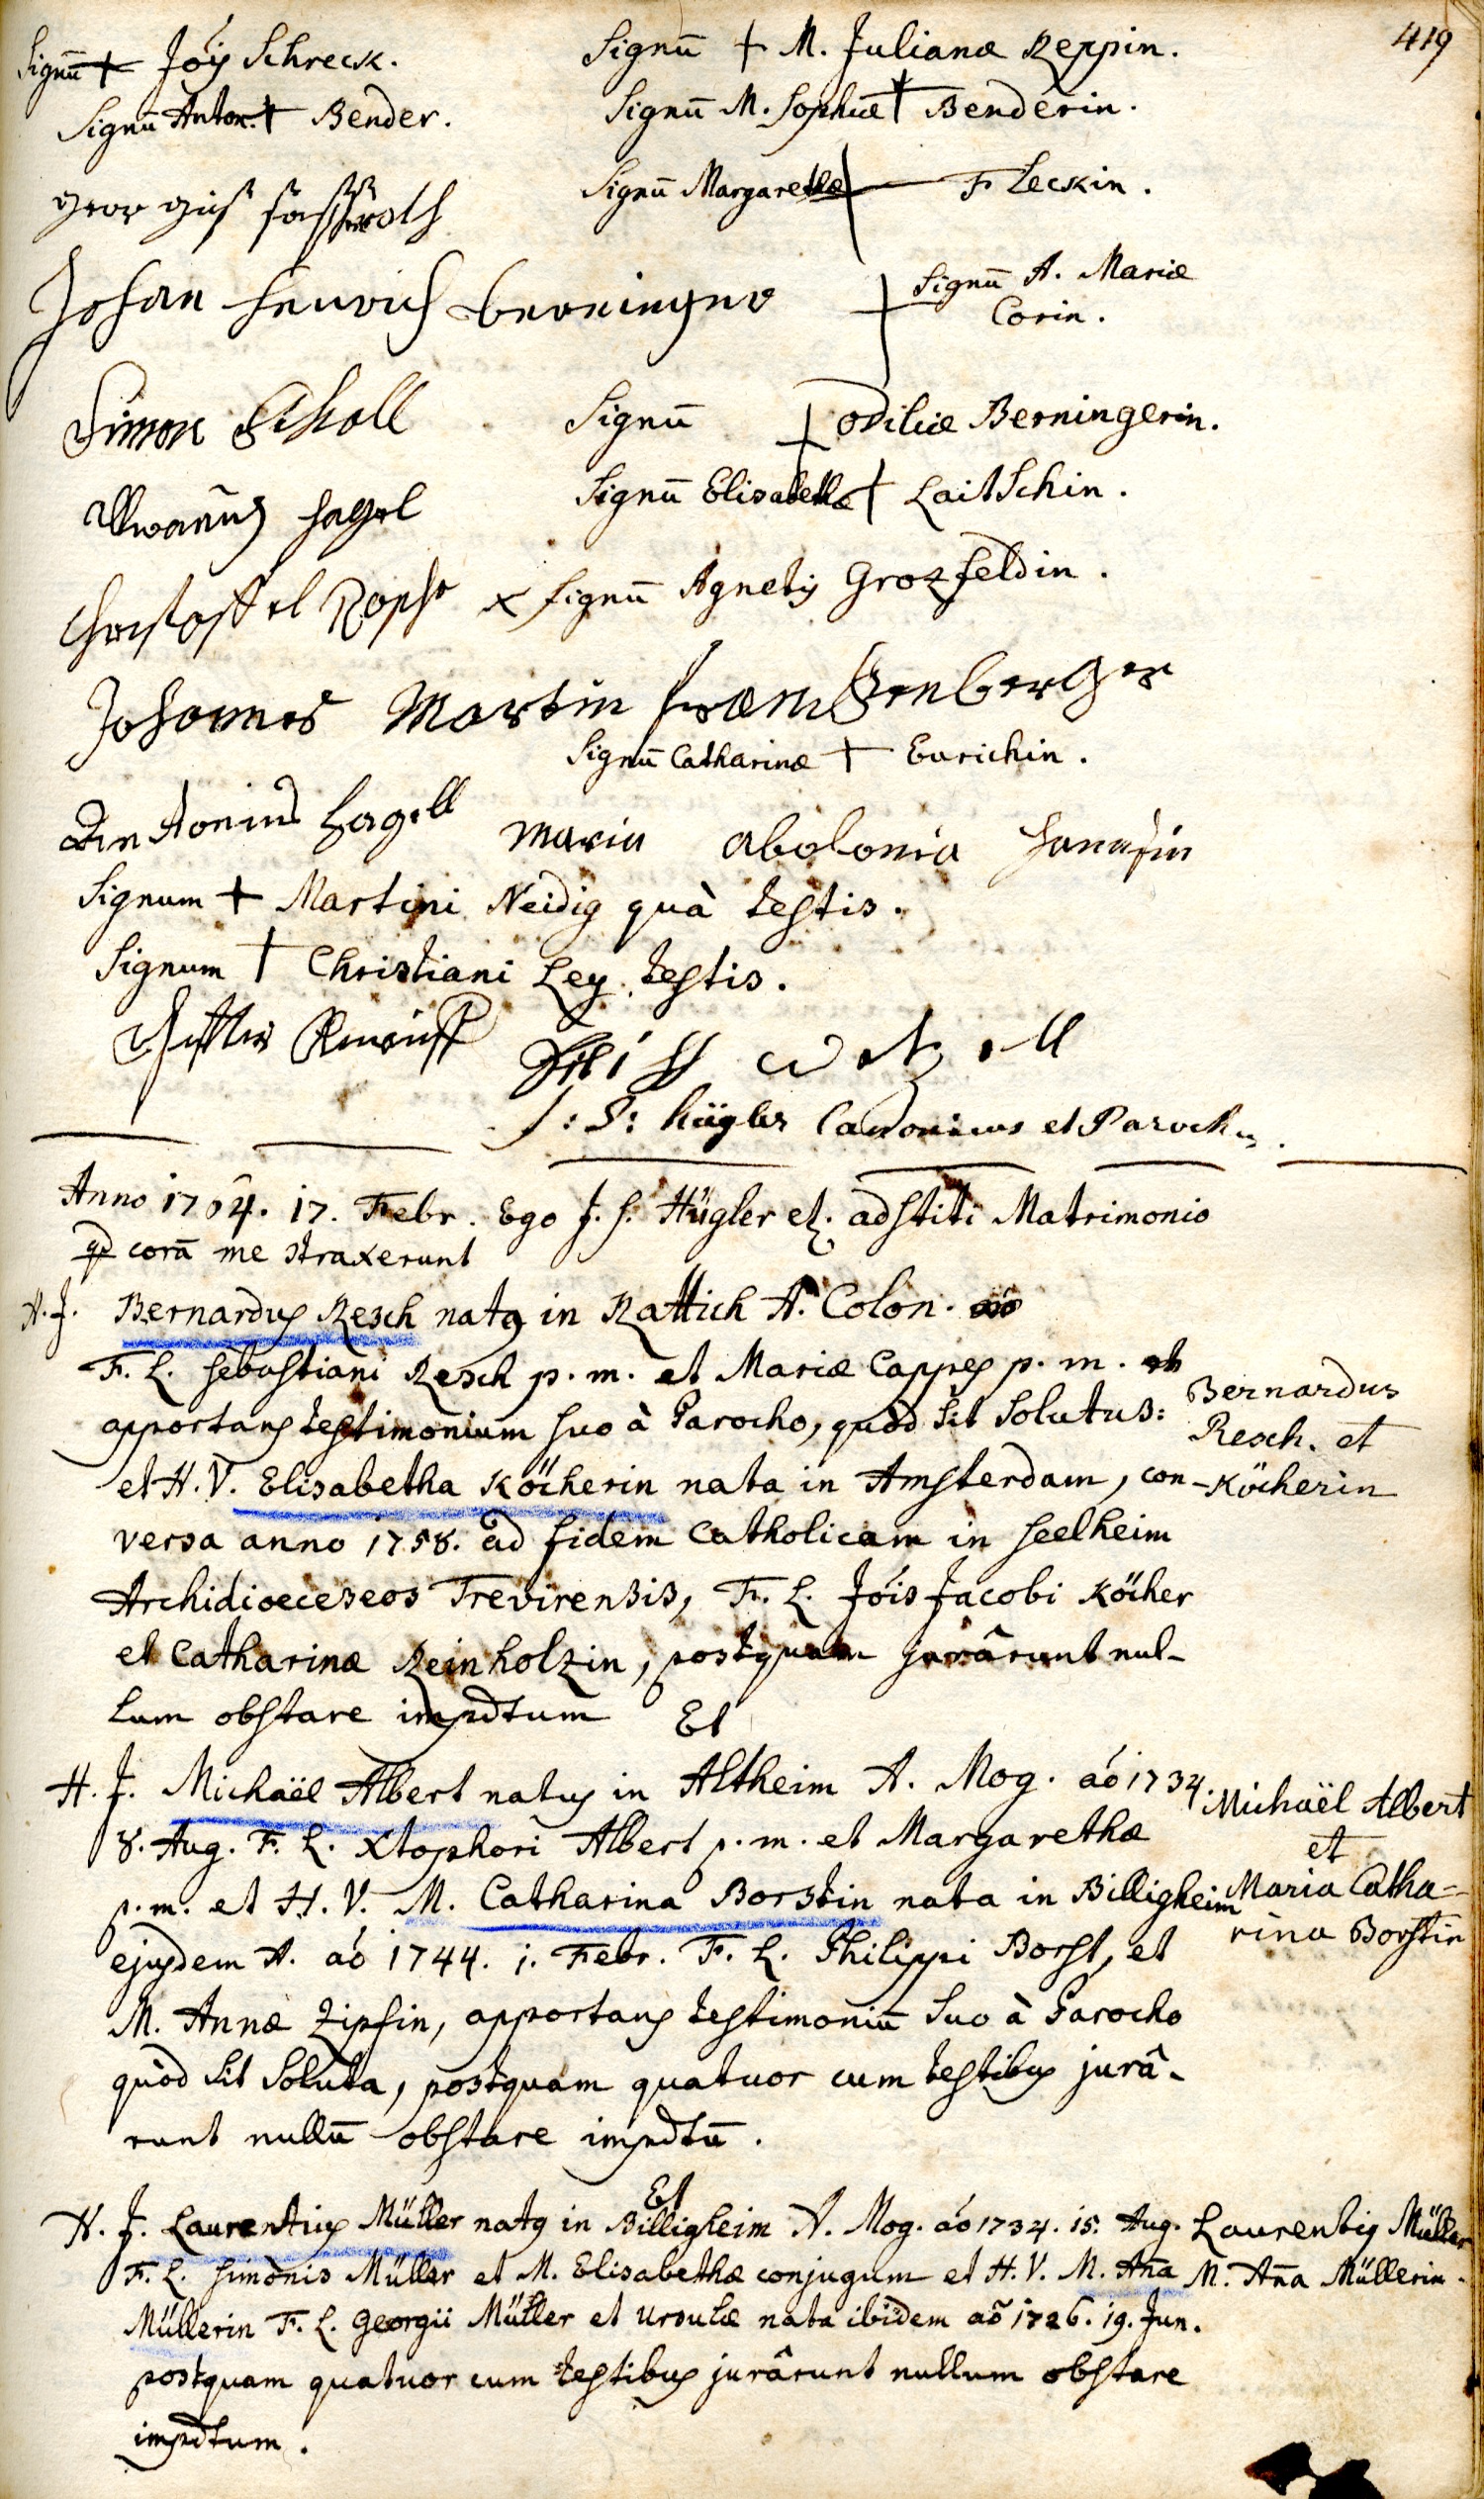 419
Signū + Jois Schreck. Signū + M. Julianæ Reppin.
Signū Anton. + Bender. Signū M. Sophiæ + Benderin.
Signū Margarethæ + Fleckin.
Johan Henrich Berninger + Signū A. Mariæ
Corin.
Simon Scholl Signū + Odiliæ Berningerin.
Hagel Signū Elisabethæ + Laitschin.
Christoffel x Signū Agnetis Grozfeldin.
Johannes Martin
Signū Catharinæ + Eurichin.
Antonius Hagell Maria Abolonia
Signum + Martini Neidig quà testis.
Signum + Christiani Ley. testis.
J: S: Hügler Canonicus et Parochus.
Anno 1764. 17. Febr. Ego J. S. Hügler etz. adstiti Matrimonio
qd corā me straxerunt
H. J. Bernardus Resch natq in Rattich A. Colon. aō
F. L. Sebastiani Resch p. m. et Mariæ Cappes p. m. et
apportans testimonium suo à Parocho, quòd sit solutus: Bernardus
Resch. et
et H. V. Elisabetha Köcherin nata in Amsterdam, con- Köcherin
versa anno 1758. ad fidem Catholicam in Seelheim
Archidioeceseos Trevirensis, F. L. Jois Jacobi Köcher
et Catharinæ Reinholzin, postquam jurârunt nul-
lum obstare impdtum Et
H. J. Michaël Albert natus in Altheim A. Mog. aó 1734. Michaël Albert
8. Aug. F. L. Xtophori Albert p. m. et Margarethæ et
p. m. et H. V. M. Catharina Borstin nata in Billigheim Maria Catha=
ejusdem A. aó 1744. j. Febr. F. L. Philippi Borst, et rina Borstin
M. Annæ Zipfin, apportans testimoniū suo à Parocho
quòd sit soluta, postquam quatuor cum testibus jurâ-
runt nullū obstare impdtū.
Et
H. J. Laurentius Müller natq in Billigheim A. Mog. aó 1734. 15. Aug. Laurentis Müller
F. L. Simonis Müller et M. Elisabethæ conjugum et H. V. M. Aña M. Aña Müllerin.
Müllerin F. L. Georgii Müller et Ursulæ nata ibidem aō 1726. 19. Jun.
postquam quatuor cum testibus jurârunt nullum obstare
impdtum.